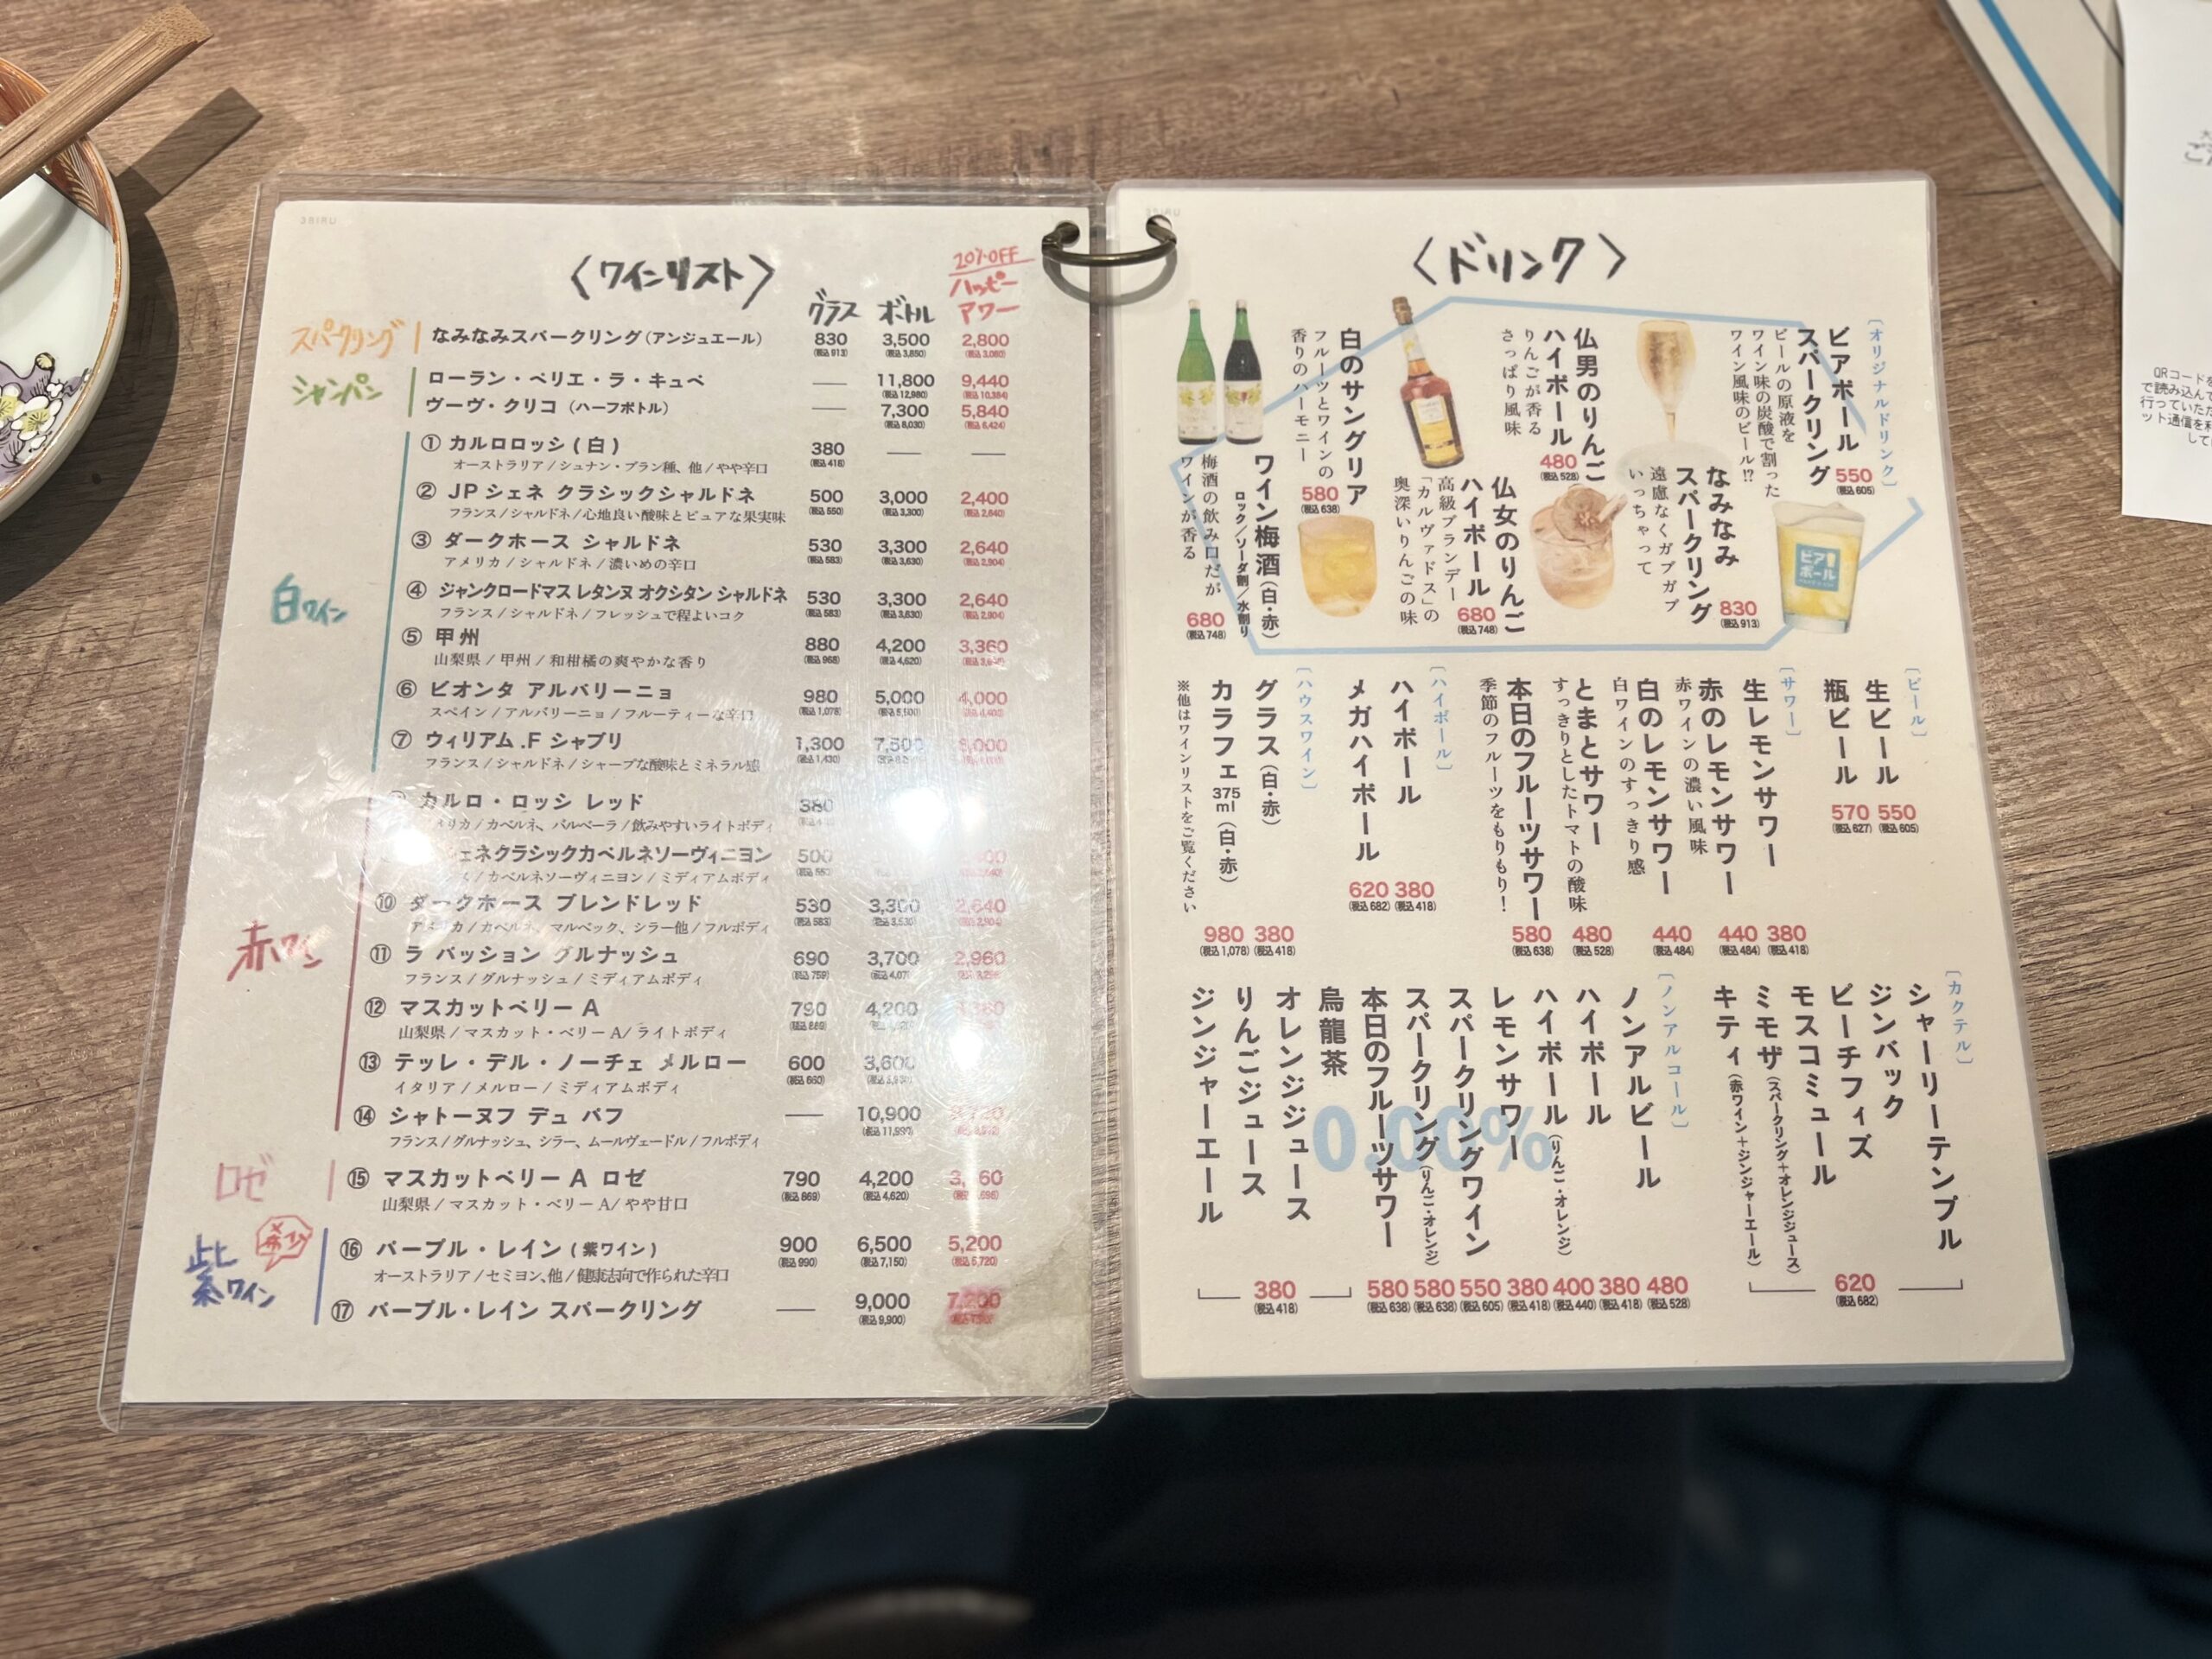 〈ワインリスト〉
グラス ボトル 20%OFF ハッピーアワー
スパークリング
なみなみスパークリング(アンジュエール) 830 3,500 2,800
(税込913) (税込3,850) (税込3,080)
シャンパン
ローラン・ペリエ・ラ・キュベ —— 11,800 9,440
(税込12,980) (税込10,384)
ヴーヴ・クリコ (ハーフボトル) —— 7,300 5,840
(税込8,030) (税込6,424)
白ワイン
① カルロロッシ(白) 380 —— ——
オーストラリア/シュナン・ブラン種、他/やや辛口 (税込418)
② JPシェネ クラシックシャルドネ 500 3,000 2,400
フランス/シャルドネ/心地良い酸味とピュアな果実味 (税込550) (税込3,300) (税込2,640)
③ ダークホース シャルドネ 530 3,300 2,640
アメリカ/シャルドネ/濃いめの辛口 (税込583) (税込3,630) (税込2,904)
④ ジャンクロードマス レタンヌ オクシタン シャルドネ 530 3,300 2,640
フランス/シャルドネ/フレッシュで程よいコク (税込583) (税込3,630) (税込2,904)
⑤ 甲州 880 4,200 3,360
山梨県/甲州/和柑橘の爽やかな香り (税込968) (税込4,620)
⑥ ビオンタ アルバリーニョ 980 5,000 4,000
スペイン/アルバリーニョ/フルーティーな辛口 (税込1,078) (税込5,500) (税込4,400)
⑦ ウィリアム.F シャブリ 1,300 7,500
フランス/シャルドネ/シャープな酸味とミネラル感 (税込1,430)
赤ワイン
カルロ・ロッシ レッド 380
/カベルネ、バルベーラ/飲みやすいライトボディ
シェネクラシックカベルネソーヴィニヨン 500
/カベルネソーヴィニヨン/ミディアムボディ (税込550)
⑩ ダークホース ブレンドレッド 530 3,300 2,640
アメリカ/カベルネ、マルベック、シラー他/フルボディ (税込583)
⑪ ラ パッション グルナッシュ 690 3,700 2,960
フランス/グルナッシュ/ミディアムボディ (税込759)
⑫ マスカットベリーA 790 4,200
山梨県/マスカット・ベリーA/ライトボディ (税込869)
⑬ テッレ・デル・ノーチェ メルロー 600 3,600
イタリア/メルロー/ミディアムボディ (税込660)
⑭ シャトーヌフ デュ パフ —— 10,900
フランス/グルナッシュ、シラー、ムールヴェードル/フルボディ (税込11,990)
ロゼ
⑮ マスカットベリーA ロゼ 790 4,200
山梨県/マスカット・ベリーA/やや甘口 (税込869) (税込4,620)
紫ワイン
⑯ パープル・レイン(紫ワイン) 900 6,500 5,200
オーストラリア/セミヨン、他/健康志向で作られた辛口 (税込990) (税込7,150) (税込5,720)
⑰ パープル・レイン スパークリング —— 9,000 7,200
(税込9,900)
〈ドリンク〉
[オリジナルドリンク]
ビアボール
スパークリング
550
(税込605)
ビールの原液を
ワイン味の炭酸で割った
ワイン風味のビール!?
ビアボール
なみなみ
スパークリング
830
(税込913)
遠慮なくガブガブ
いっちゃって
仏男のりんご
ハイボール
480
(税込528)
りんごが香る
さっぱり風味
仏女のりんご
ハイボール
680
(税込748)
高級ブランデー
「カルヴァドス」の
奥深いりんごの味
白のサングリア
580
(税込638)
フルーツとワインの
香りのハーモニー
ワイン梅酒(白・赤)
ロック/ソーダ割/水割り
680
(税込748)
梅酒の飲み口だが
ワインが香る
[ビール]
生ビール
550
(税込605)
瓶ビール
570
(税込627)
[サワー]
生レモンサワー
380
(税込418)
赤のレモンサワー
440
(税込484)
赤ワインの濃い風味
白のレモンサワー
440
(税込484)
白ワインのすっきり感
とまとサワー
480
(税込528)
すっきりとしたトマトの酸味
本日のフルーツサワー
580
(税込638)
季節のフルーツをもりもり!
[ハイボール]
ハイボール
380
(税込418)
メガハイボール
620
(税込682)
[ハウスワイン]
グラス(白・赤)
380
(税込418)
カラフェ375ml(白・赤)
980
(税込1,078)
※他はワインリストをご覧ください
[カクテル]
シャーリーテンプル
ジンバック
ピーチフィズ
モスコミュール
ミモザ(スパークリング+オレンジジュース)
キティ(赤ワイン+ジンジャーエール)
620
(税込682)
[ノンアルコール]
0.00%
ノンアルビール
480
(税込528)
ハイボール
380
(税込418)
ハイボール(りんご・オレンジ)
400
(税込440)
レモンサワー
380
(税込418)
スパークリングワイン
550
(税込605)
スパークリング(りんご・オレンジ)
580
(税込638)
本日のフルーツサワー
580
(税込638)
烏龍茶
オレンジジュース
りんごジュース
ジンジャーエール
380
(税込418)
QRコードを
で読み込んで
行っていただ
ット通信を利